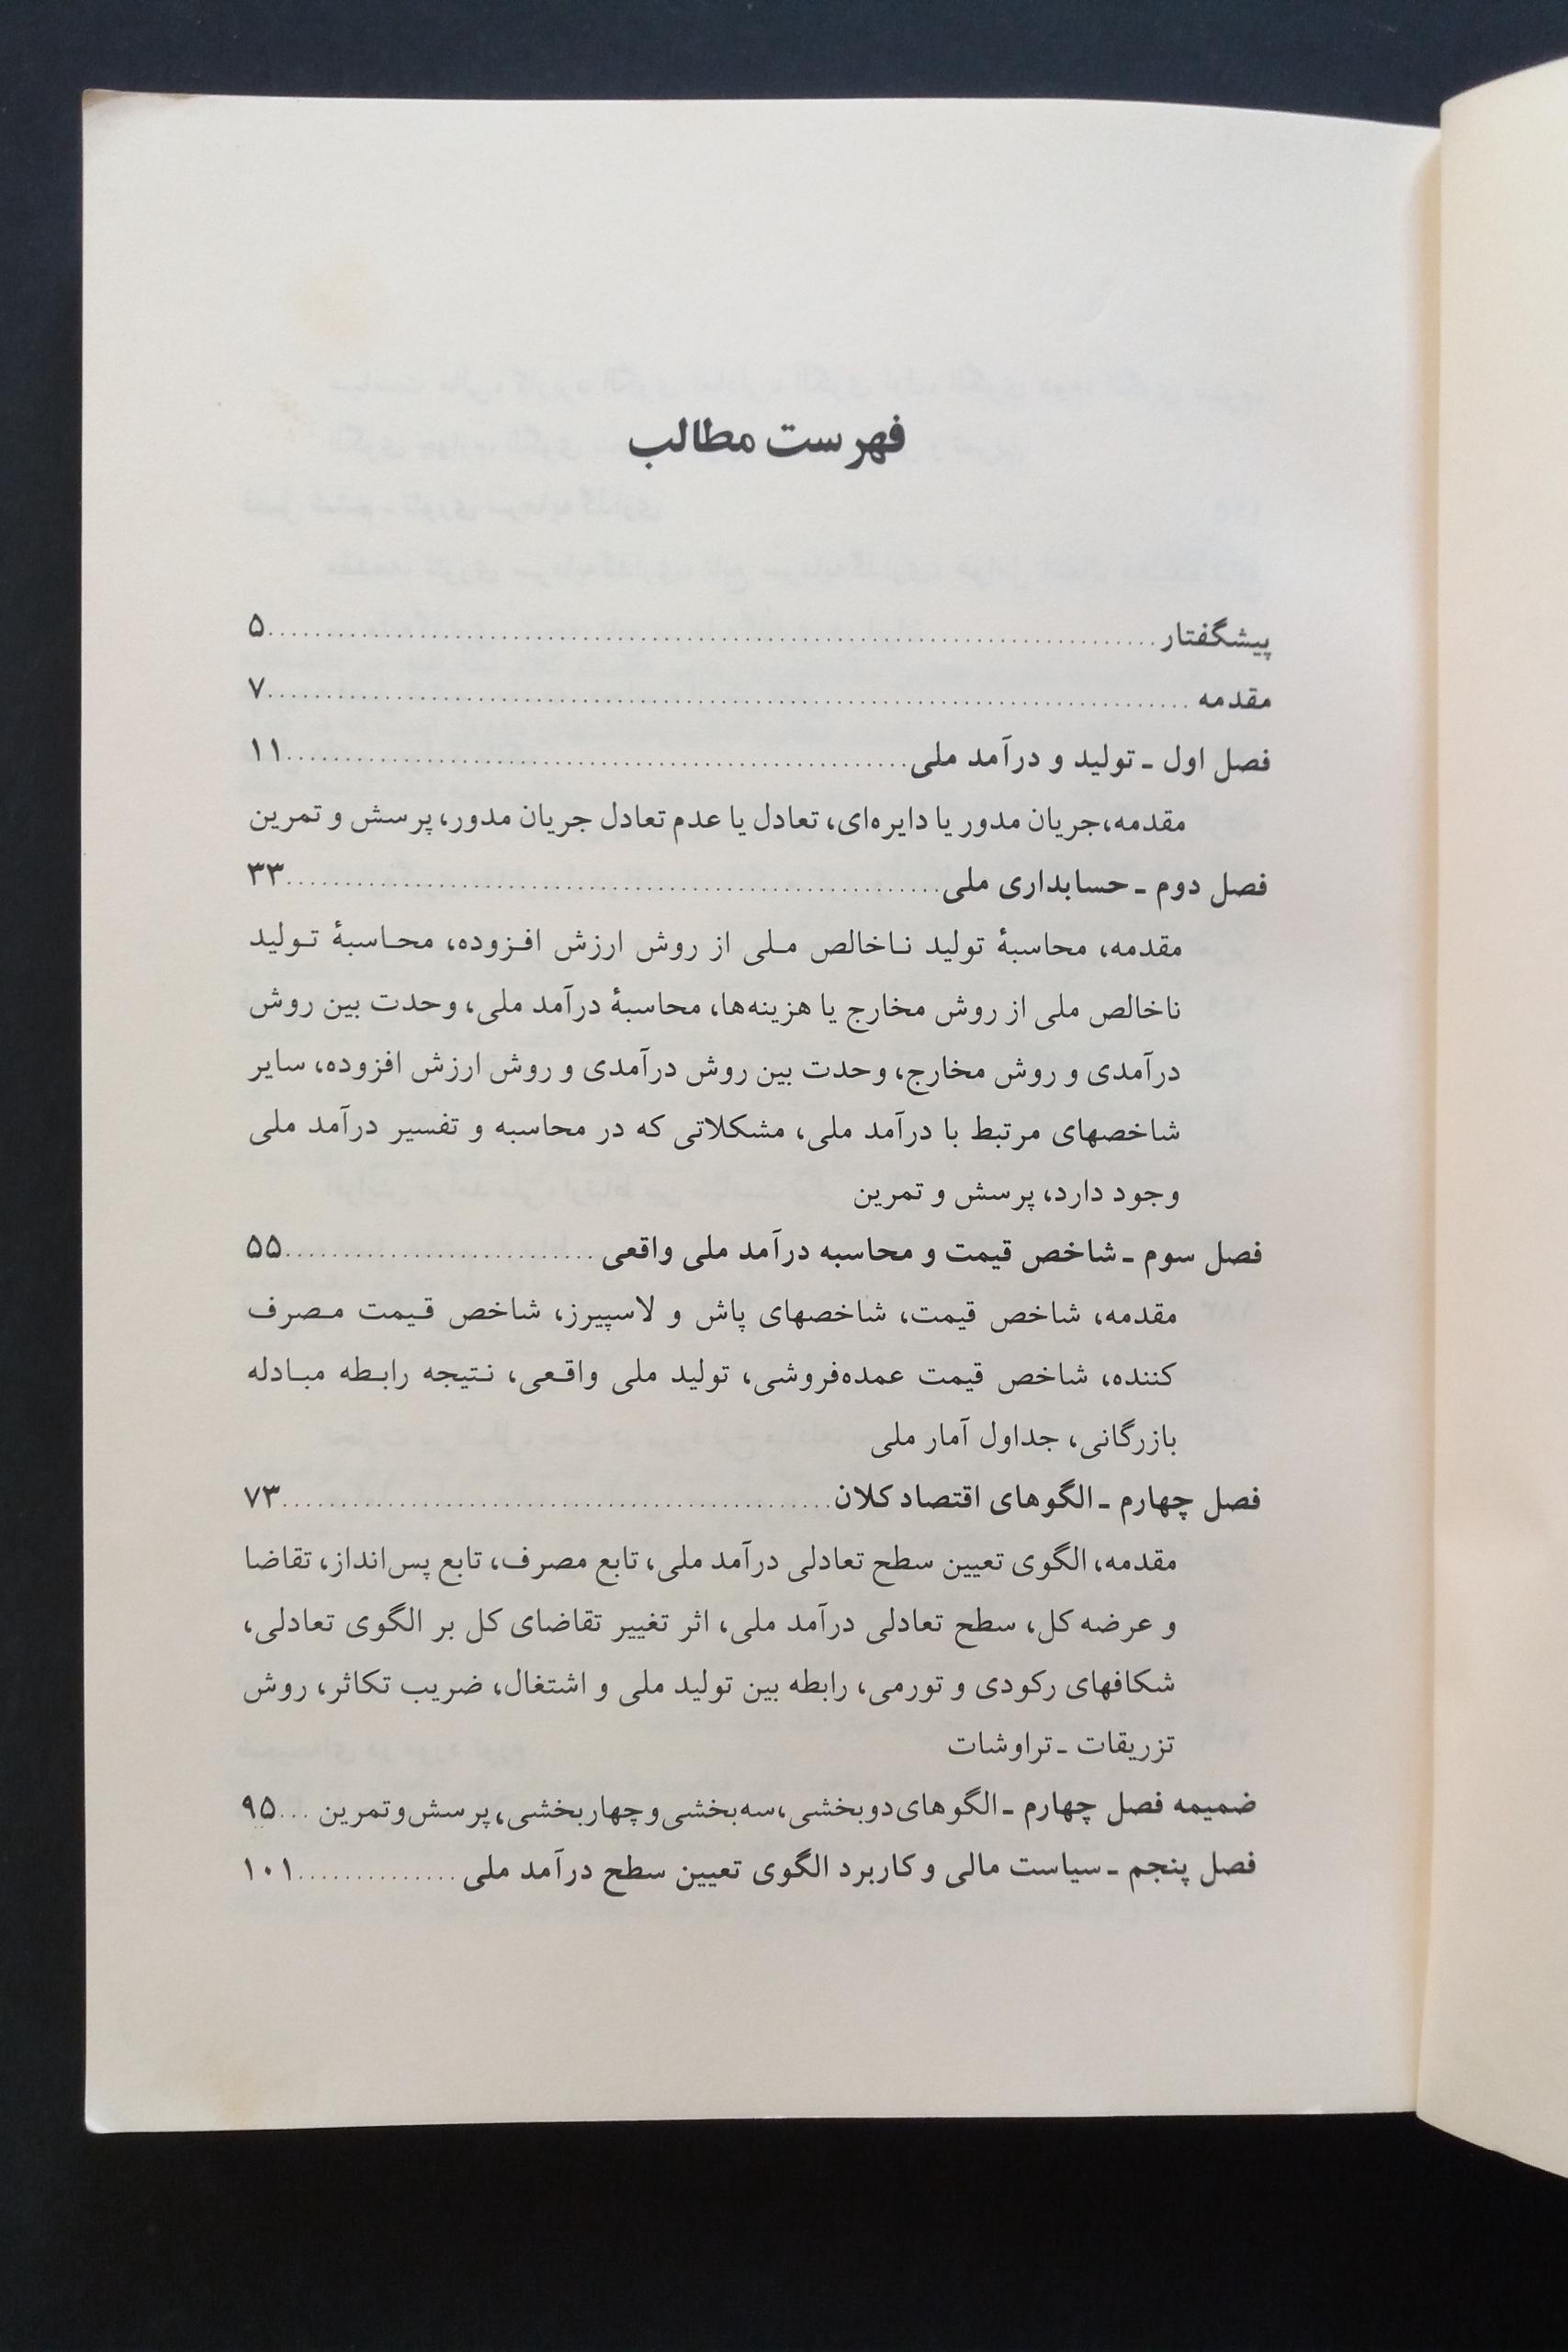 فهرست مطالب
پیشگفتار ........ ۵
مقدمه ........ ۷
فصل اول ـ تولید و درآمد ملی ........ ۱۱
مقدمه، جریان مدور یا دایره‌ای، تعادل یا عدم تعادل جریان مدور، پرسش و تمرین
فصل دوم ـ حسابداری ملی ........ ۳۳
مقدمه، محاسبهٔ تولید ناخالص ملی از روش ارزش افزوده، محاسبهٔ تولید
ناخالص ملی از روش مخارج یا هزینه‌ها، محاسبهٔ درآمد ملی، وحدت بین روش
درآمدی و روش مخارج، وحدت بین روش درآمدی و روش ارزش افزوده، سایر
شاخصهای مرتبط با درآمد ملی، مشکلاتی که در محاسبه و تفسیر درآمد ملی
وجود دارد، پرسش و تمرین
فصل سوم ـ شاخص قیمت و محاسبه درآمد ملی واقعی ........ ۵۵
مقدمه، شاخص قیمت، شاخصهای پاش و لاسپیرز، شاخص قیمت مصرف
کننده، شاخص قیمت عمده‌فروشی، تولید ملی واقعی، نتیجه رابطه مبادله
بازرگانی، جداول آمار ملی
فصل چهارم ـ الگوهای اقتصاد کلان ........ ۷۳
مقدمه، الگوی تعیین سطح تعادلی درآمد ملی، تابع مصرف، تابع پس‌انداز، تقاضا
و عرضه کل، سطح تعادلی درآمد ملی، اثر تغییر تقاضای کل بر الگوی تعادلی،
شکافهای رکودی و تورمی، رابطه بین تولید ملی و اشتغال، ضریب تکاثر، روش
تزریقات ـ تراوشات
ضمیمه فصل چهارم ـ الگوهای دوبخشی، سه‌بخشی و چهاربخشی، پرسش و تمرین ... ۹۵
فصل پنجم ـ سیاست مالی و کاربرد الگوی تعیین سطح درآمد ملی ........ ۱۰۱